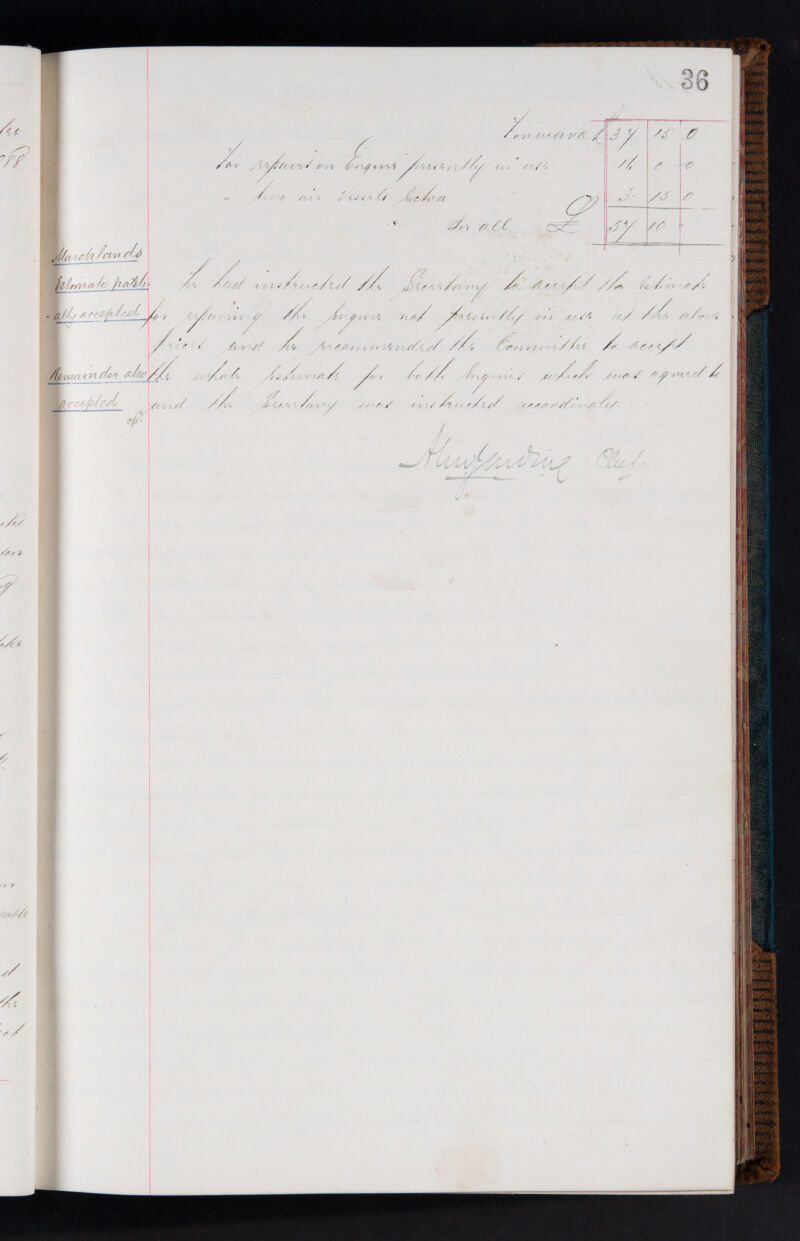 36
Forward £ 37 15 0
For repairs on Engine presently in use 16 0 0
" two air Vessels Extra 3 15 0
In all £ 57 10 -
Murchlands
Estimate parti-
-ally accepted
he had instructed the Secretary to accept the Estimate
for repairing the Engine not presently in use at the above
prices and he recommended the Committee to accept
Remainder also
accepted
the whole Estimate for both Engines which was agreed to
and the Secretary was instructed accordingly